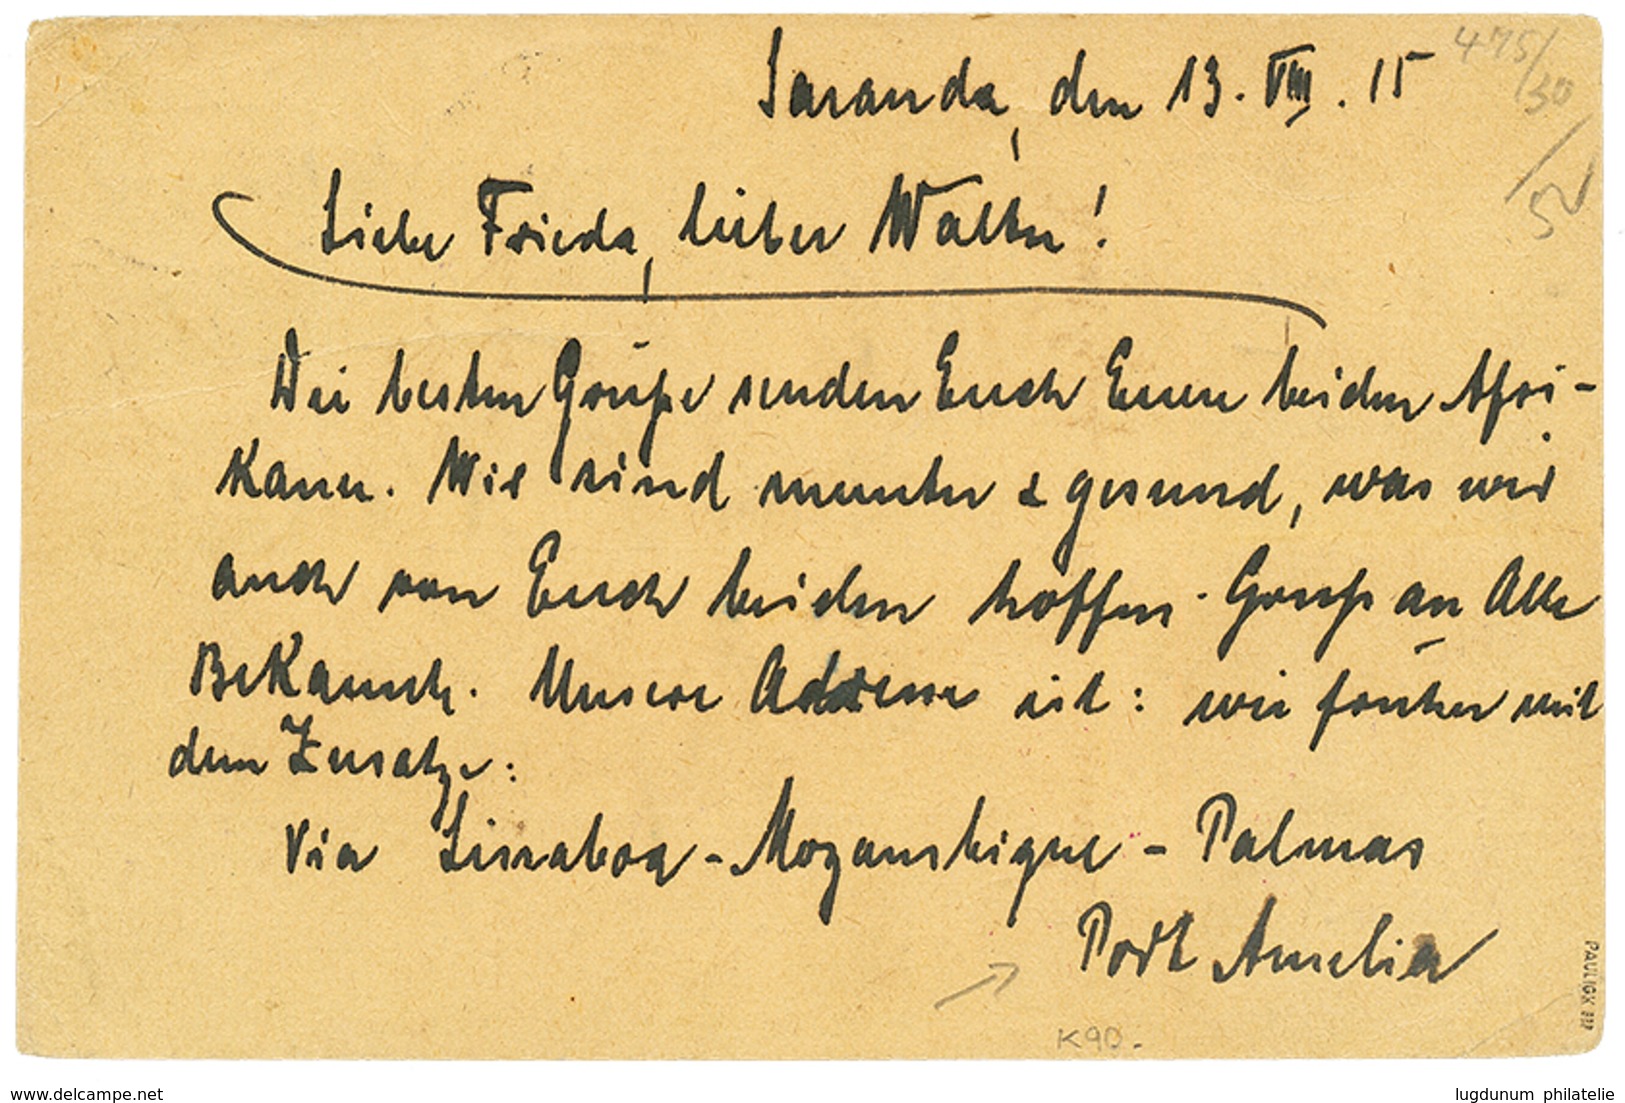 Saranda, den 13. VIII. 15
475/30
/5
Liebe Frieda, lieber Walter!
Die besten Grüße senden Euch Eure beiden Afri-
kaner. Wir sind munter & gesund, was wir
auch von Euch beiden hoffen. Gruß an Alle
Bekannte. Unsere Adresse ist: wie früher mit
dem Zusatze:
Via Lissaboa - Mozambique - Palmas
Port Amelia
K90.-
PAULIGK BPP
www.delcampe.net
lugdunum philatelie